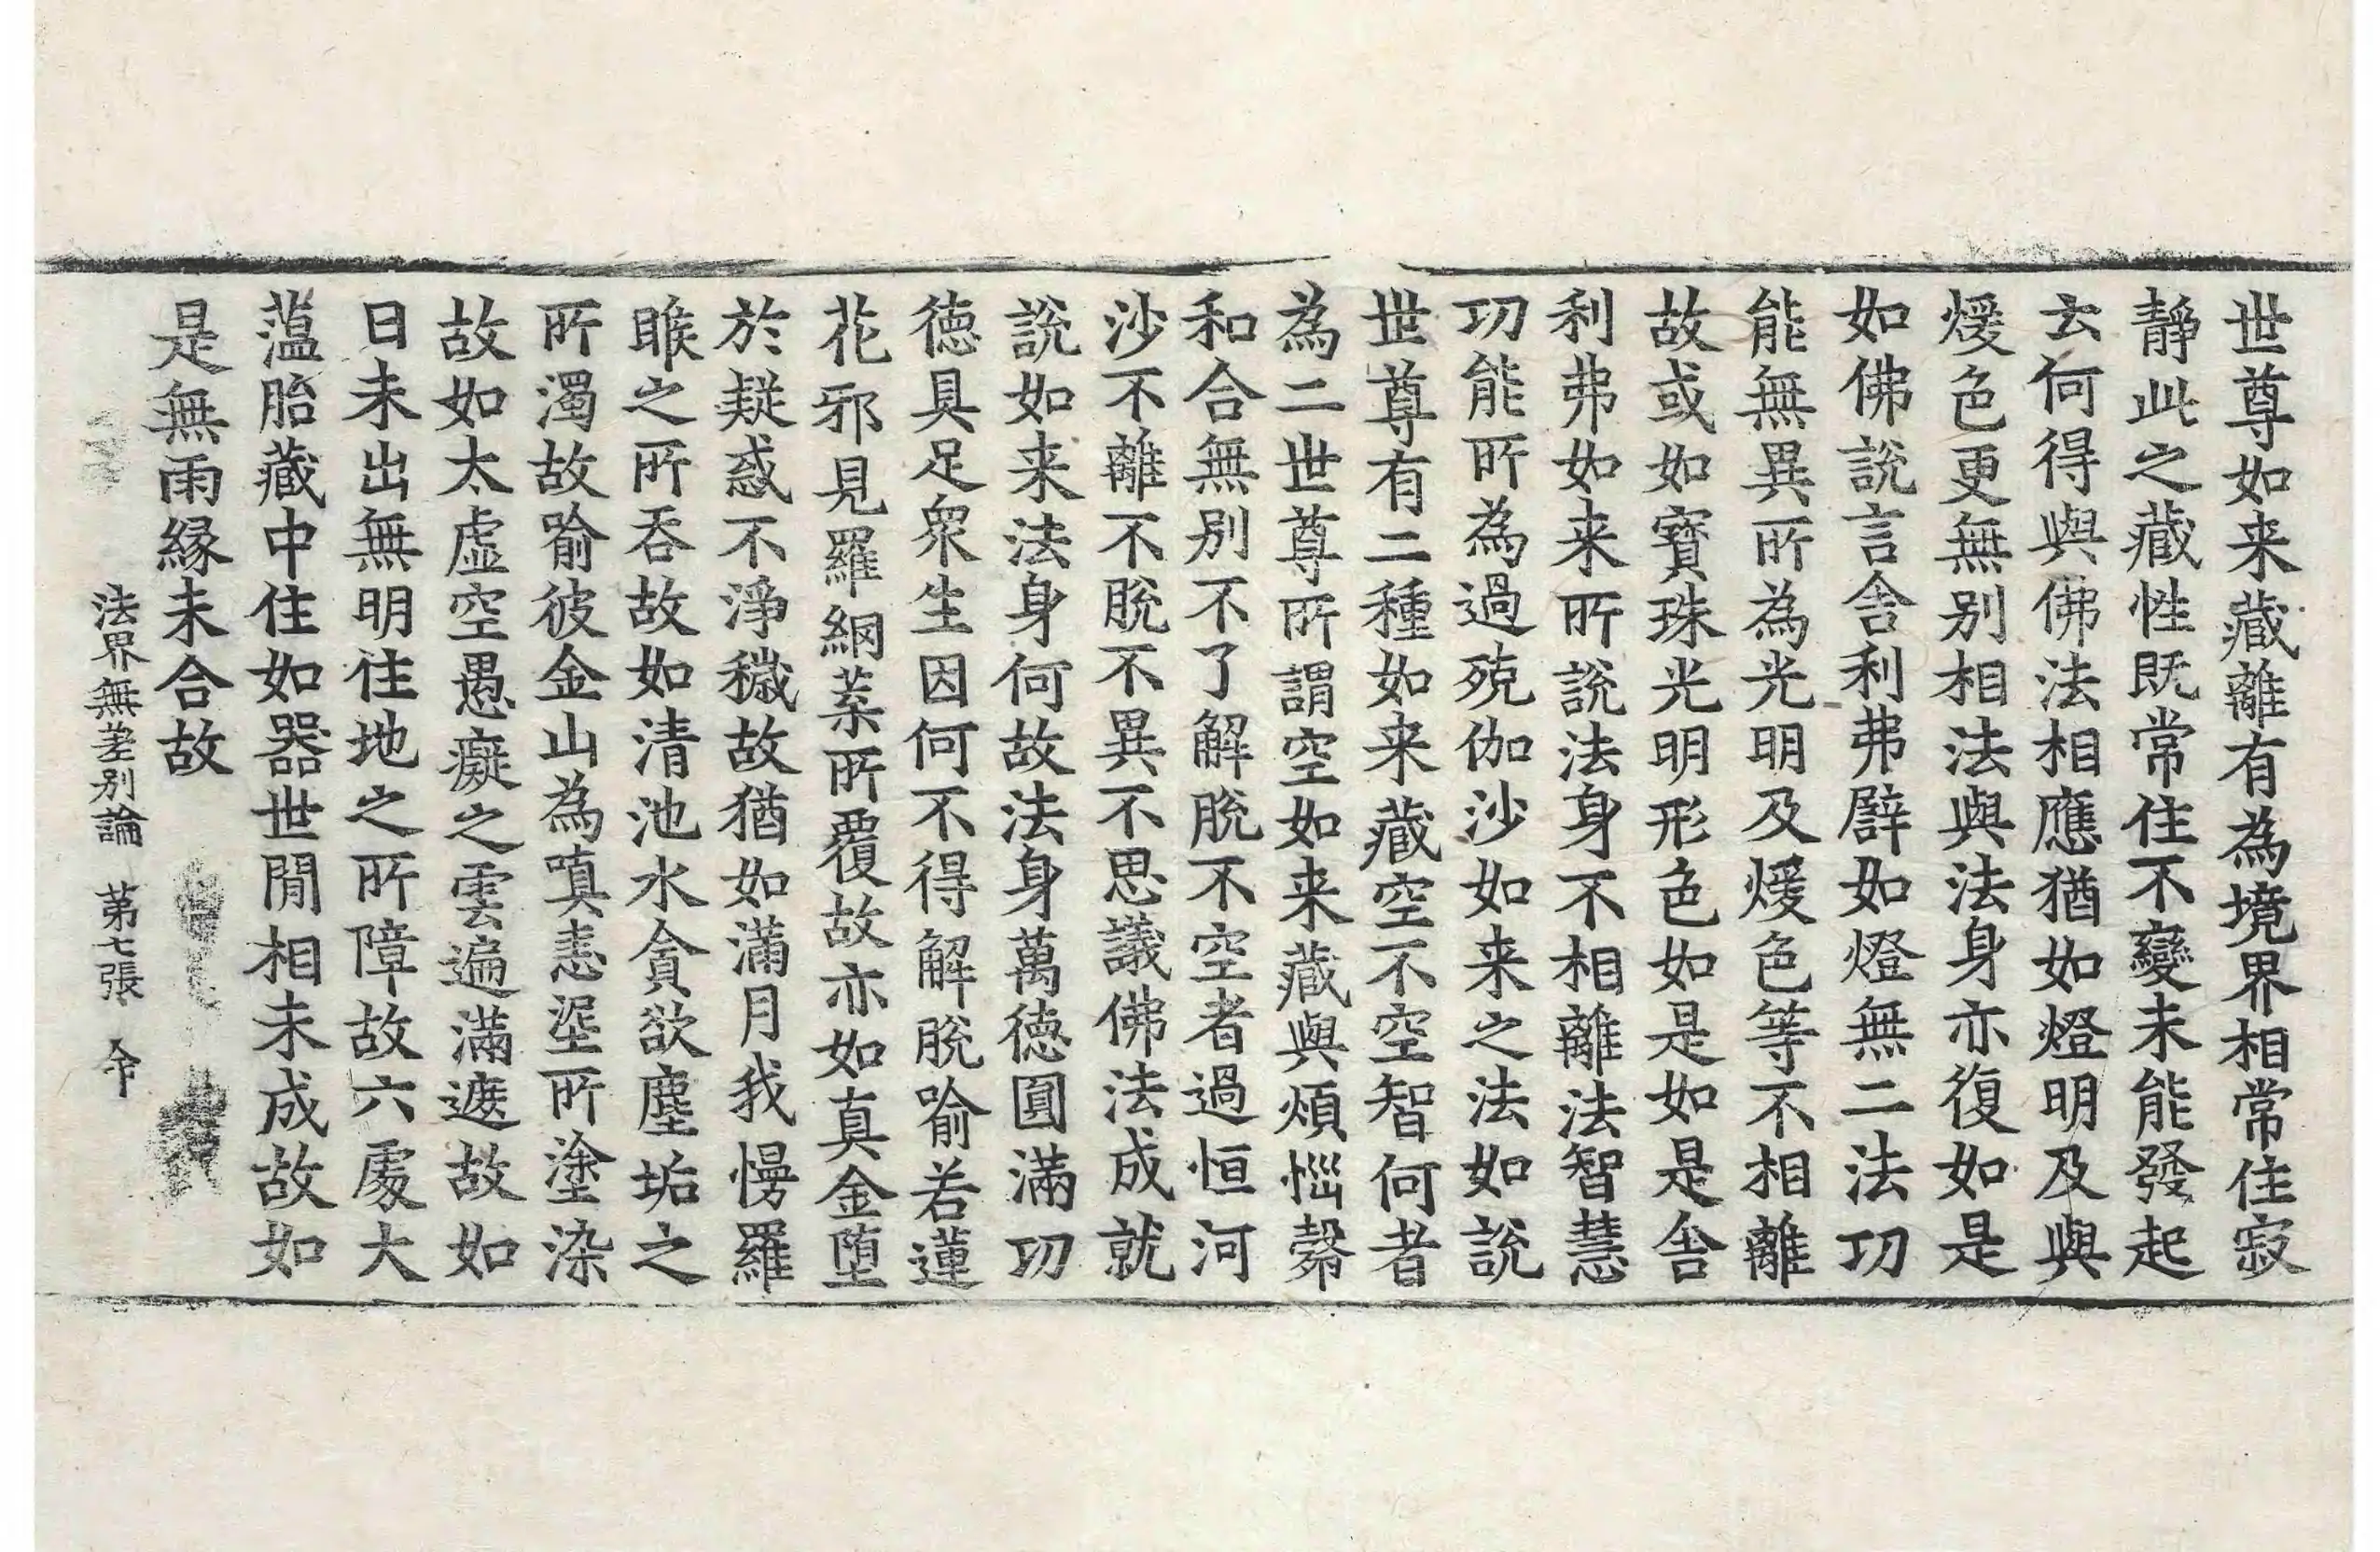 世尊如来藏離有為境界相常住寂
靜此之藏性既常住不變未能發起
云何得與佛法相應猶如燈明及與
煖色更無別相法與法身亦復如是
如佛說言舎利弗辟如燈無二法功
能無異所為光明及煖色等不相離
故或如寳珠光明形色如是如是舎
利弗如来所說法身不相離法智慧
功能所為過殑伽沙如来之法如說
世尊有二種如来藏空不空智何者
為二世尊所謂空如来藏與煩惱㲉
和合無別不了解脫不空者過恒河
沙不離不脫不異不思議佛法成就
說如来法身何故法身萬德圓滿功
德具足衆生因何不得解脫喻若蓮
花邪見羅網葉所覆故亦如真金堕
於疑惑不淨穢故猶如滿月我慢羅
睺之所吞故如清池水貪欲塵垢之
所濁故喻彼金山為嗔恚埿所塗染
故如太虛空愚癡之雲遍滿遮故如
日未出無明住地之所障故六處大
薀胎藏中住如器世間相未成故如
是無雨縁未合故
法界無差别論 第七張 令